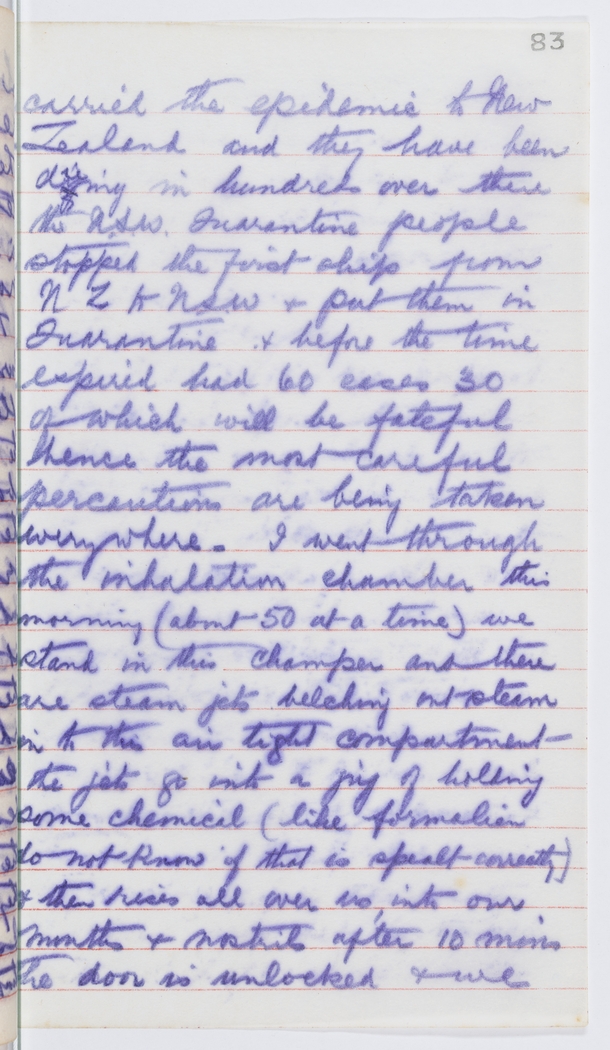 83
carried the epidemic to New
Zealand and they have been
dying in hundreds over there
the N.S.W. Quarantine people
stopped the first ship from
N Z to N.S.W + put them in
Quarantine + before the time
expired had 60 cases 30
of which will be fateful
hence the most careful
percautions are being taken
everywhere. I went through
the inhalation chamber this
morning (about 50 at a time) we
stand in this champer and there
are steam jets belching out steam
in to this air tight compartment
the jets go into a jug of holding
some chemical (like formalien
do not know if that is spealt correctly)
+ then rises all over us, into our
mouths + nostrils after 10 mins
the door is unlocked + we